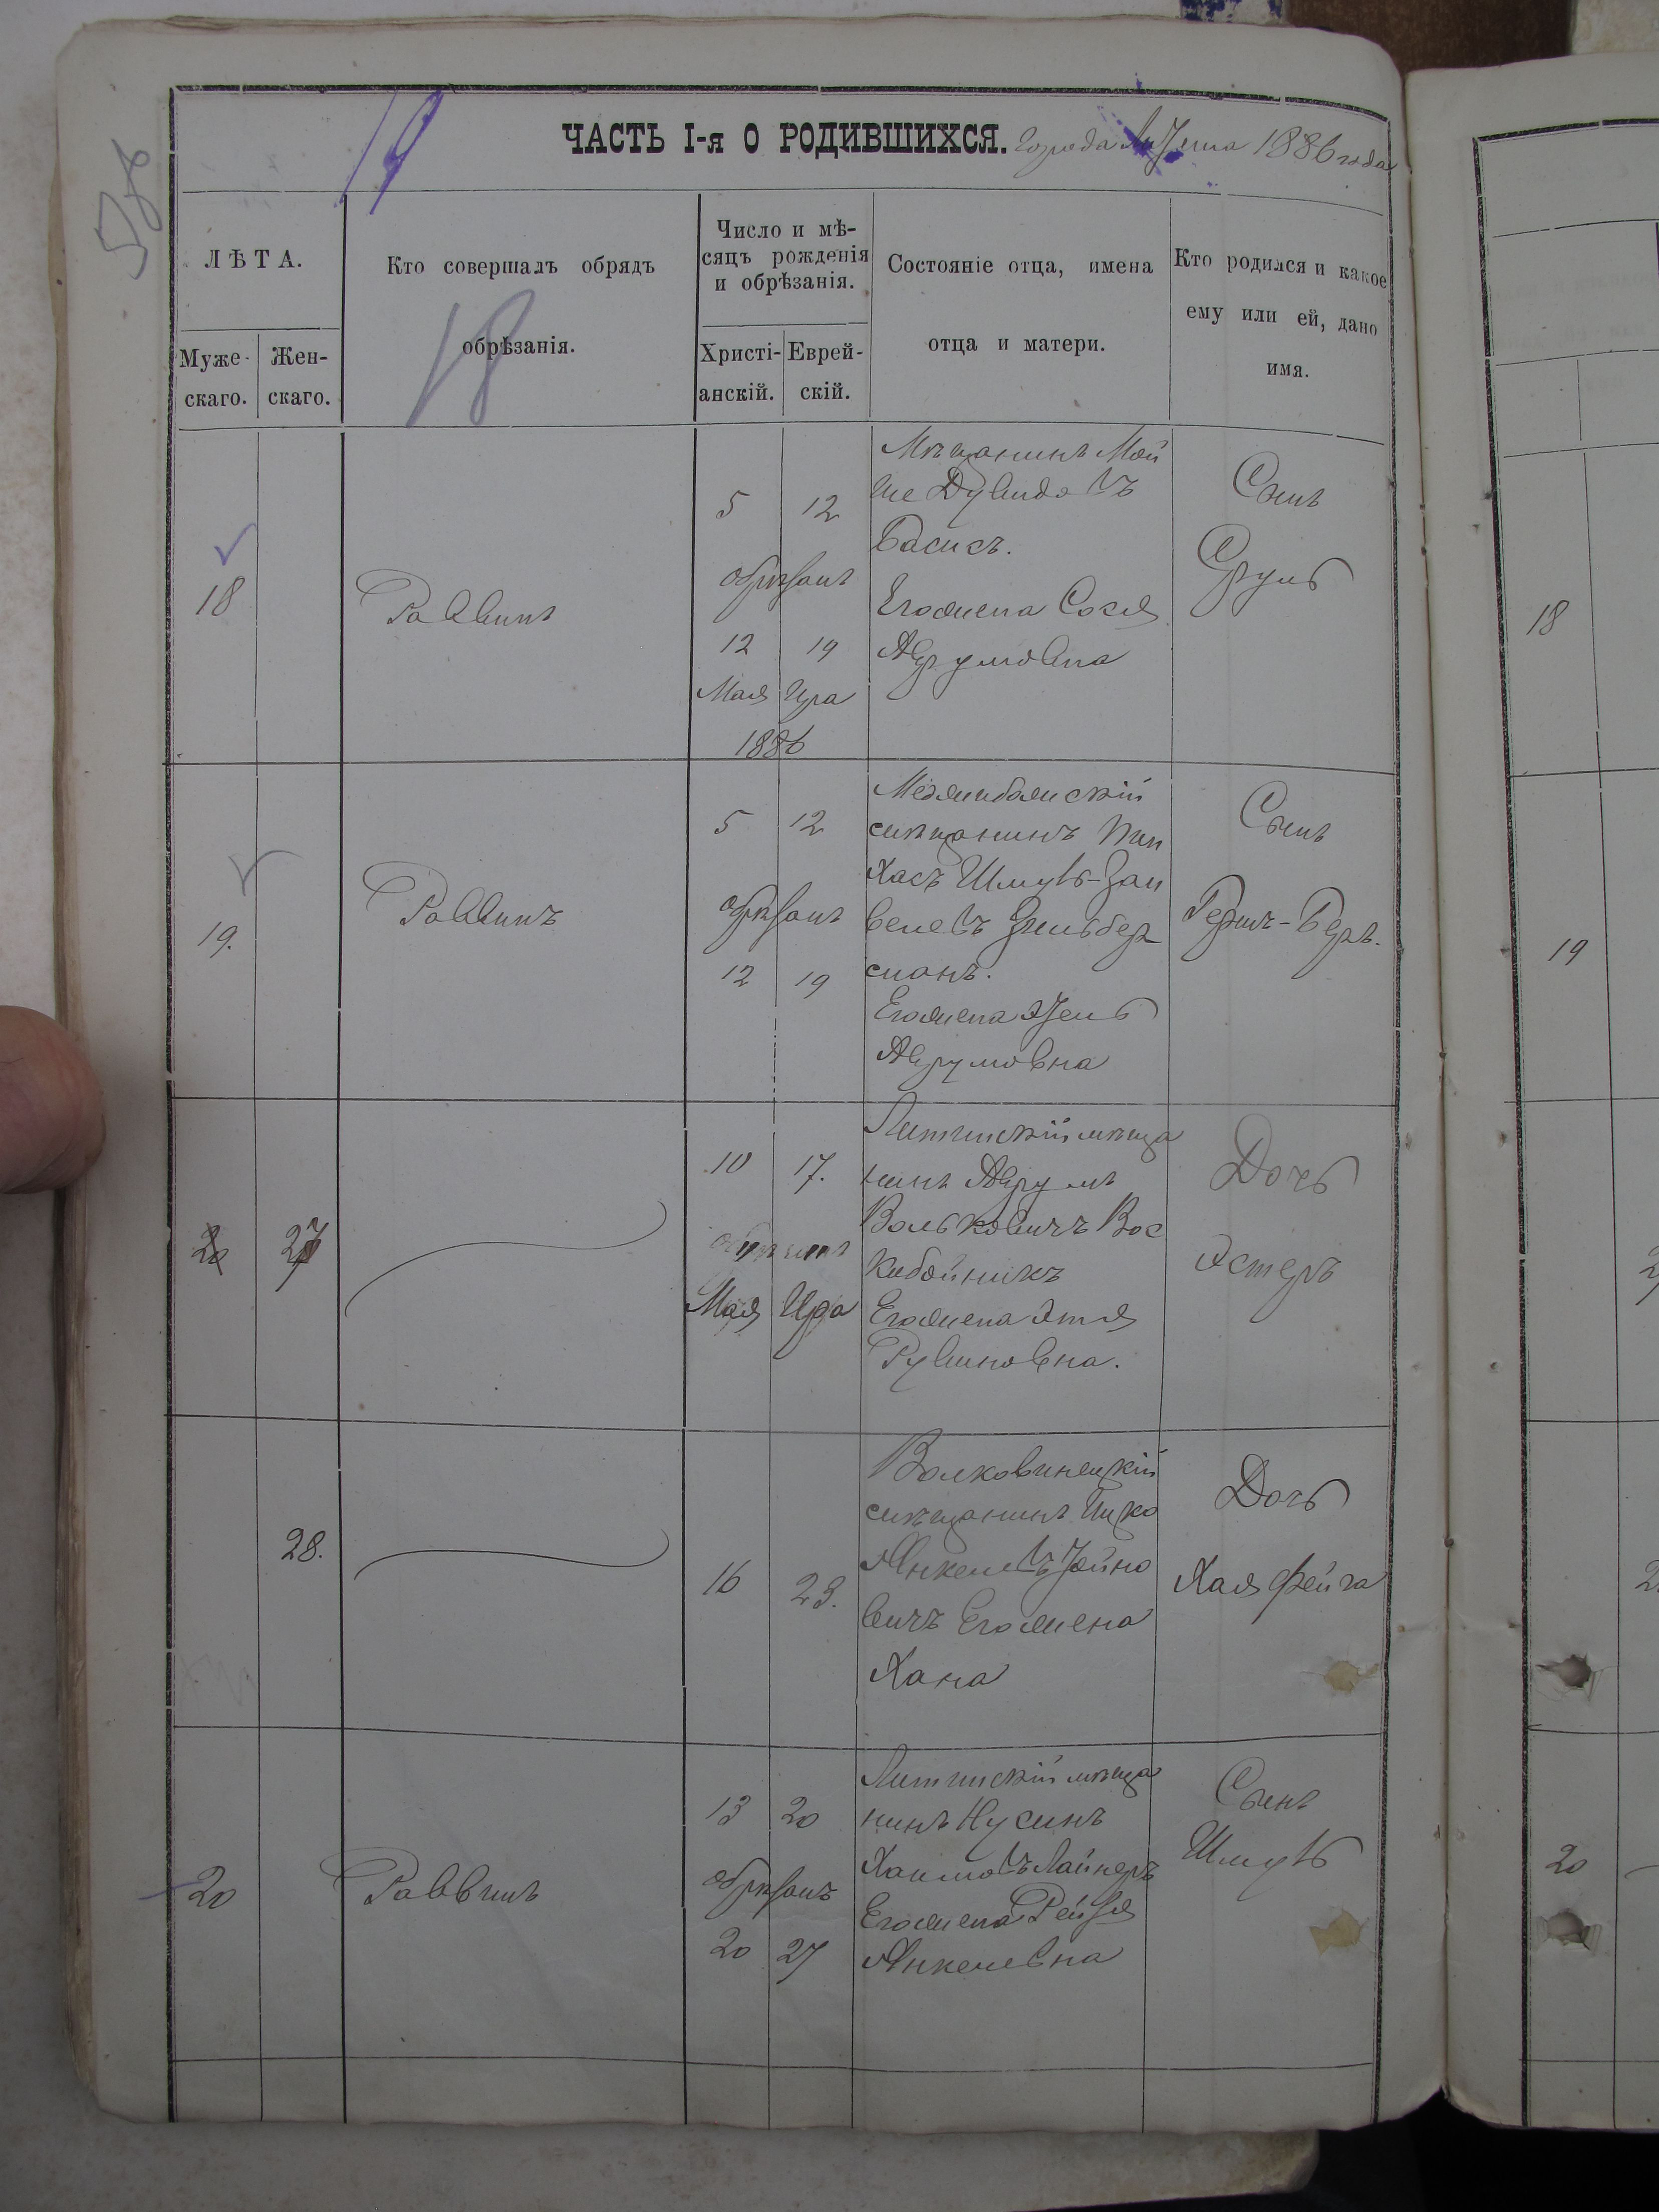 19
ЧАСТЬ I-я О РОДИВШИХСЯ. города 1886 года
ЛѢТА.
Муже-
скаго.
Жен-
скаго.
Кто совершалъ обрядъ
обрѣзанія.
18
Число и мѣ-
сяцъ рожденія
и обрѣзанія.
Христі-
анскій.
Еврей-
скій.
Состояніе отца, имена
отца и матери.
Кто родился и какое
ему или ей, дано
имя.
18
Раввинъ
5 12
обрѣзанъ
12 19
Мая Ира
1886
Мѣщанинъ Мой
ше Дувидовъ
Басисъ.
Его жена Сося
Аврумовна
Сынъ
Сруль
19.
Раввинъ
5 12
обрѣзанъ
12 19
мѣщанинъ Пин
хасъ Шмуль-Зан
велевъ Зильбер
манъ.
Его жена
Аврумовна
Сынъ
Гершъ-Беръ.
20 27
10 17.
Мая Ира
Литинскій мѣща
нинъ Аврумъ
Вольковичъ Вос
кобойникъ
Его жена Этя
Рувиновна.
Дочь
Эстеръ
28.
16 23.
Волковинецкій
мѣщанинъ Ицко
Янкелевъ Зойно
вичъ Его жена
Хана
Дочь
Хая Фейга
20
Раввинъ
13 20
обрѣзанъ
20 27
Литинскій мѣща
нинъ Нусинъ
Хаимовъ Лайнеръ
Его жена Рейзя
Янкелевна
Сынъ
Шмуль
18
19
20